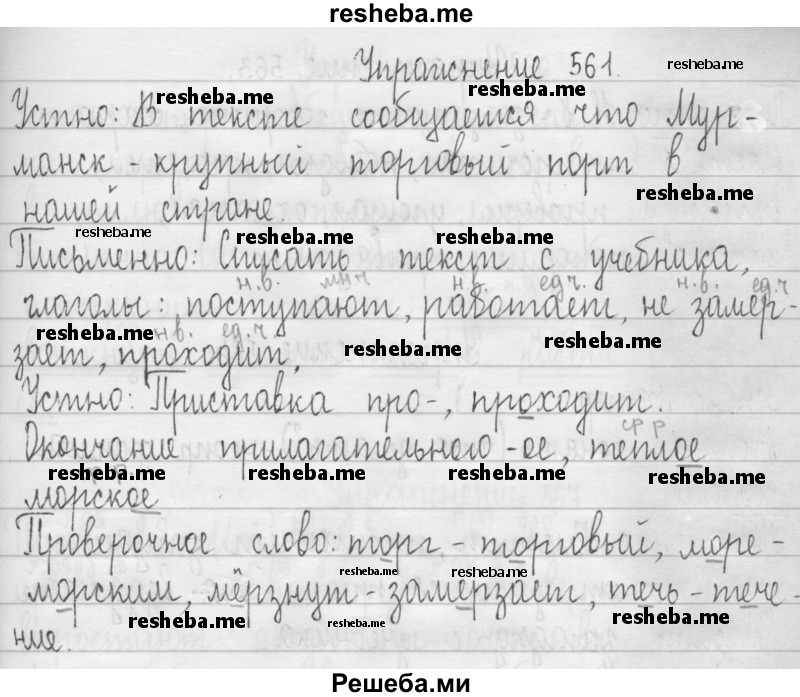 resheba.me
Упражнение 561.
resheba.me
resheba.me
resheba.me
Устно: В тексте сообщается что Мур-
манск - крупный торговый порт в
resheba.me
нашей стране.
resheba.me
resheba.me
resheba.me
Письменно: Списать текст с учебника,
н.в. мн.ч н.в. ед.ч. н.в. ед.ч
глаголы: поступают, работает, не замер-
resheba.me
н.в. ед.ч
resheba.me
resheba.me
зает, проходит.
Устно: Приставка про-, проходит.
ср.р.
Окончание прилагательного -ое, теплое
resheba.me
resheba.me
resheba.me
resheba.me
ср.р.
морское
Проверочное слово: торг - торговый, море -
resheba.me
resheba.me
морским, мёрзнут - замерзает, течь - тече-
resheba.me
resheba.me
resheba.me
ние.
Решеба.ми